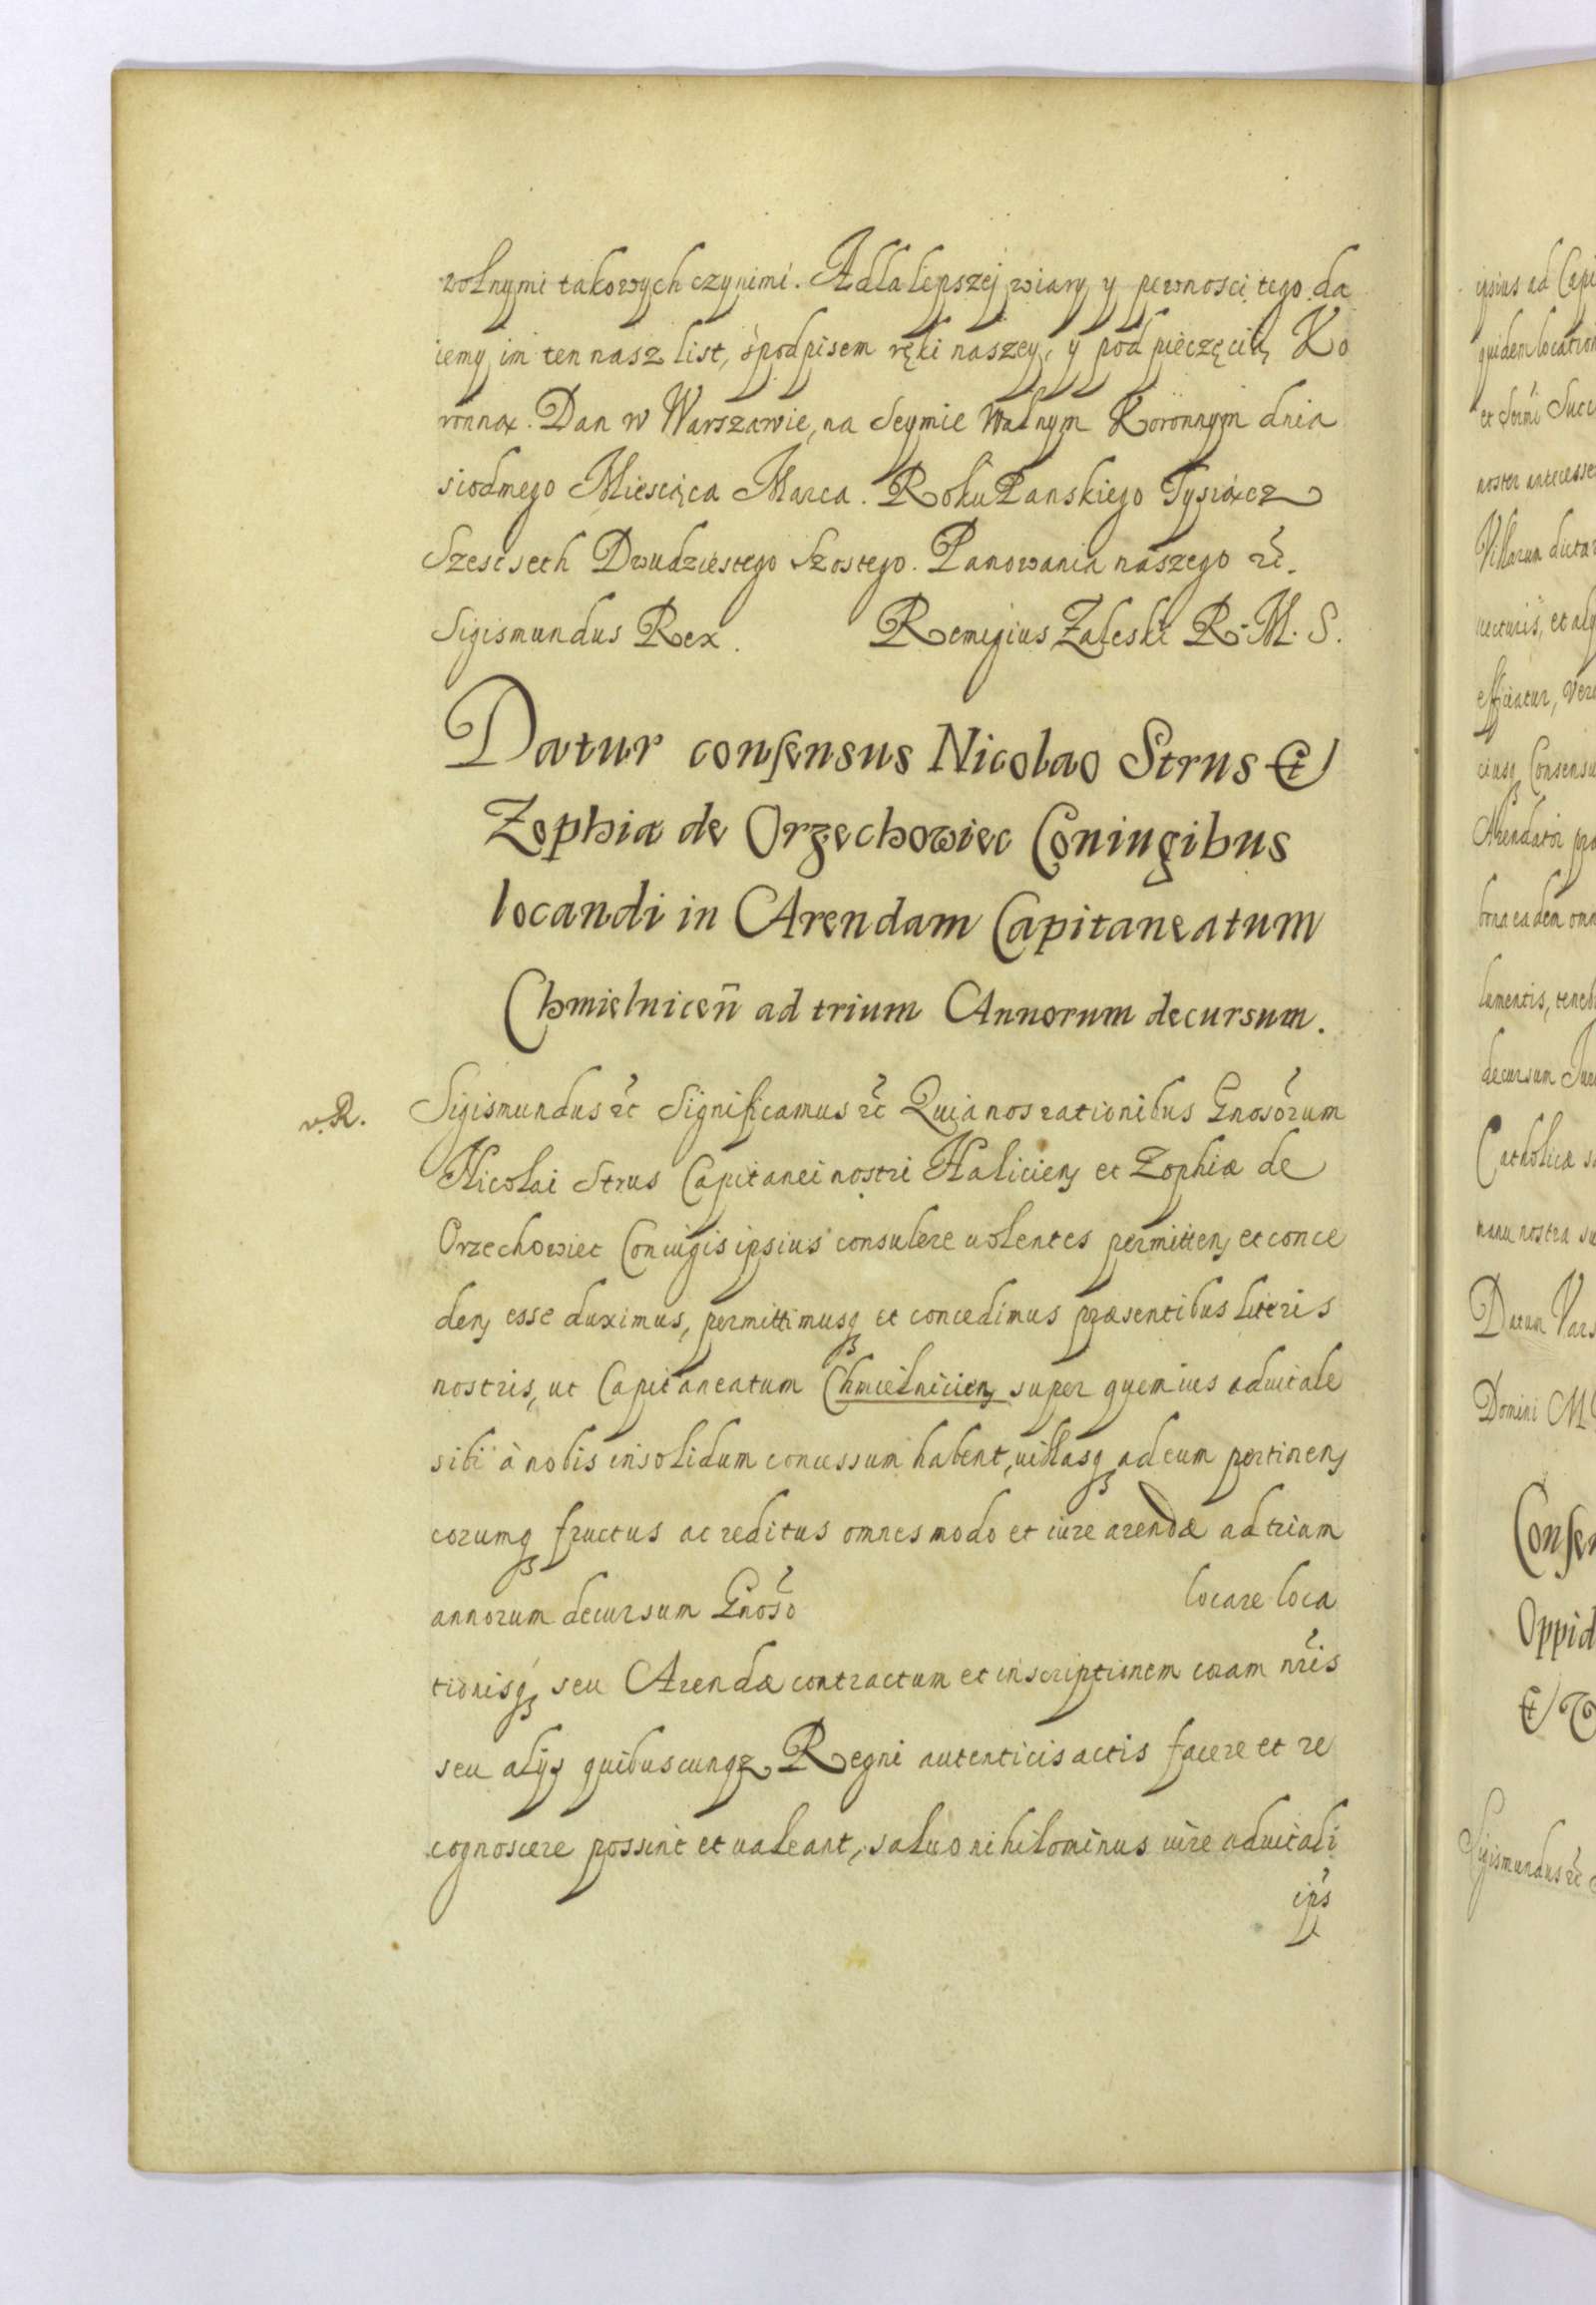 wolnymi takowych czynimi. A dla lepszej wiary y pewnosci tego da
iemy im ten nasz list, s podpisem ręki naszey, y pod pieczęcią Ko
ronną. Dan w Warszawie, na Seymie Walnym Koronnym dnia
siodmego Miesiąca Marca. Roku Panskiego Tysiącz
Szescseth Dwudziestego Szostego. Panowania naszego ࣾc.
Sigismundus Rex. Remigius Zaleski R. M. S.
Datur consensus Nicolao Strus Et
Zophiæ de Orzechowiec Coniugibus
locandi in Arendam Capitaneatum
Chmielniceñ ad trium Annorum decursum.
v. R.
Sigismundus ꝛc Significamus ꝛc Quia nos rationibus Gnosorum
Nicolai Strus Capitanei nostri Halicień et Zophiæ de
Orzechowiec Coniugis ipsius consulere uolentes permitteñ et conce
deñ esse duximus, permittimusq et concedimus præsentibus literis
nostris, ut Capitaneatum Chmielnicieñ super quem ius aduitale
sibi à nobis in solidum concessum habent, uillasq ad eum pertineñ
eorumq fructus ac reditus omnes modo et iure arendæ ad trium
annorum decursum Gnoso locare loca
tionisq seu Arendæ contractum et inscriptionem coram nris
seu alijs quibuscunqz Regni autenticis actis facere et re
cognoscere possint et ualeant, saluo nihilominus iure aduitali
ips
ipsius ad Capi
quidem location
et Sermi Succ
noster antecesse
Villarum dictar
uecturis, et aly
efficiatur, Ver
eiusq Consensu
Arendator pro
bona eadem omn
lumentis, teneb
decursum Jur
Catholicæ s
manu nostra su
Datum Vars
Domini M
Consen
Oppid
Et
Sigismundus ꝛc